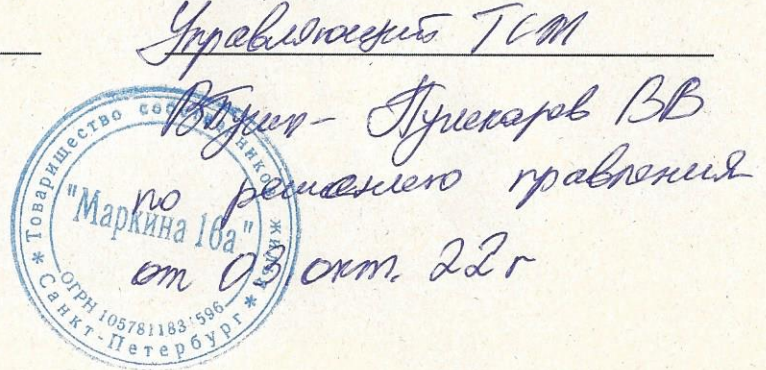 Управляющий ТСЖ
Пушкарев ВВ
по решению правления
от 03 окт. 22 г
* Товарищество собственников жилья *
"Маркина 16а"
ОГРН 1057811831596
Санкт-Петербург